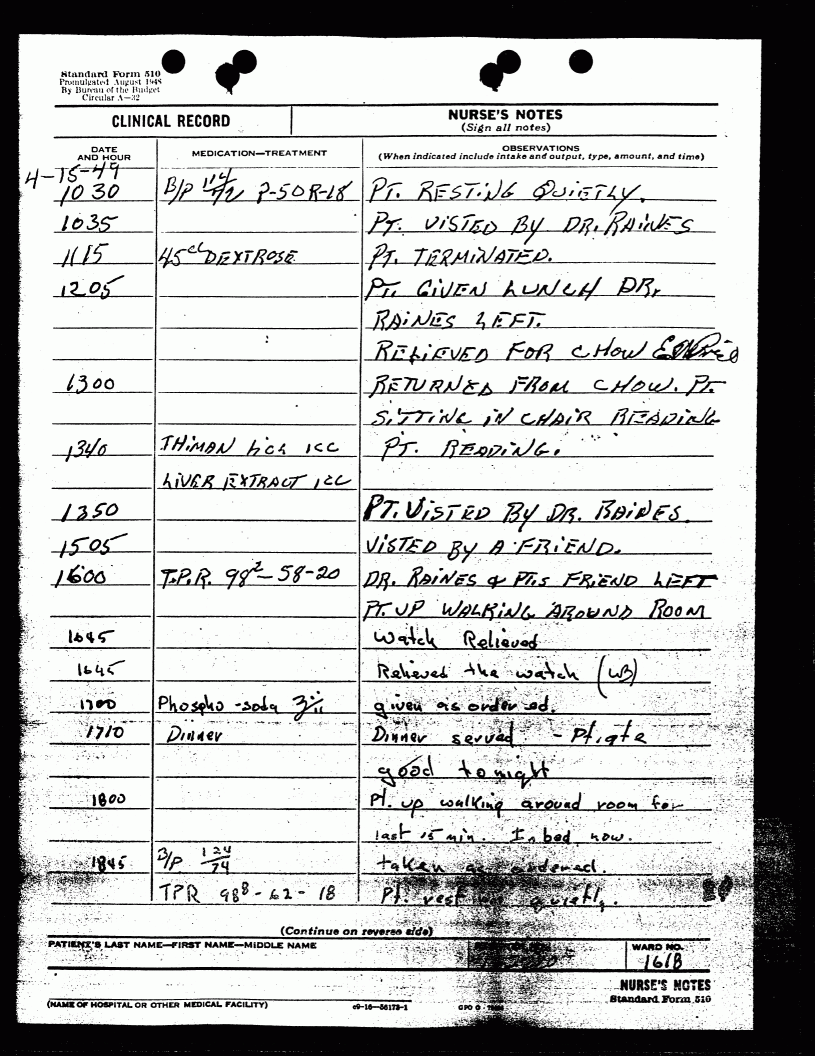 Standard Form 510
Promulgated August 1948
By Bureau of the Budget
Circular A—32
CLINICAL RECORD
NURSE'S NOTES
(Sign all notes)
DATE AND HOUR
MEDICATION—TREATMENT
OBSERVATIONS
(When indicated include intake and output, type, amount, and time)
4-15-49
1030 B/P 114/72 P-50 R-18 PT. RESTING QUIETLY.
1035 PT. VISTED BY DR. RAINES
1115 45cc DEXTROSE PT. TERMINATED.
1205 PT. GIVEN LUNCH DR.
RAINES LEFT.
RELIEVED FOR CHOW
1300 RETURNED FROM CHOW. PT.
SITTING IN CHAIR READING
1340 THIMAN 1cc PT. READING.
LIVER EXTRACT 1cc
1350 PT. VISTED BY DR. RAINES.
1505 VISTED BY A FRIEND.
1600 T.P.R. 98²-58-20 DR. RAINES & PT.S FRIEND LEFT
PT. UP WALKING AROUND ROOM
1645 Watch Relieved
1645 Relieved the watch (WB)
1700 Phospho-soda given as ordered.
1710 Dinner Dinner served - Pt. ate
good tonight
1800 Pt. up walking around room for
last 15 min. In bed now.
1845 B/P 124/74 taken as ordered.
TPR 98⁸-62-18 Pt. resting quietly.
(Continue on reverse side)
PATIENT'S LAST NAME—FIRST NAME—MIDDLE NAME
WARD NO.
161B
NURSE'S NOTES
Standard Form 510
(NAME OF HOSPITAL OR OTHER MEDICAL FACILITY)
c9-16—56173-1